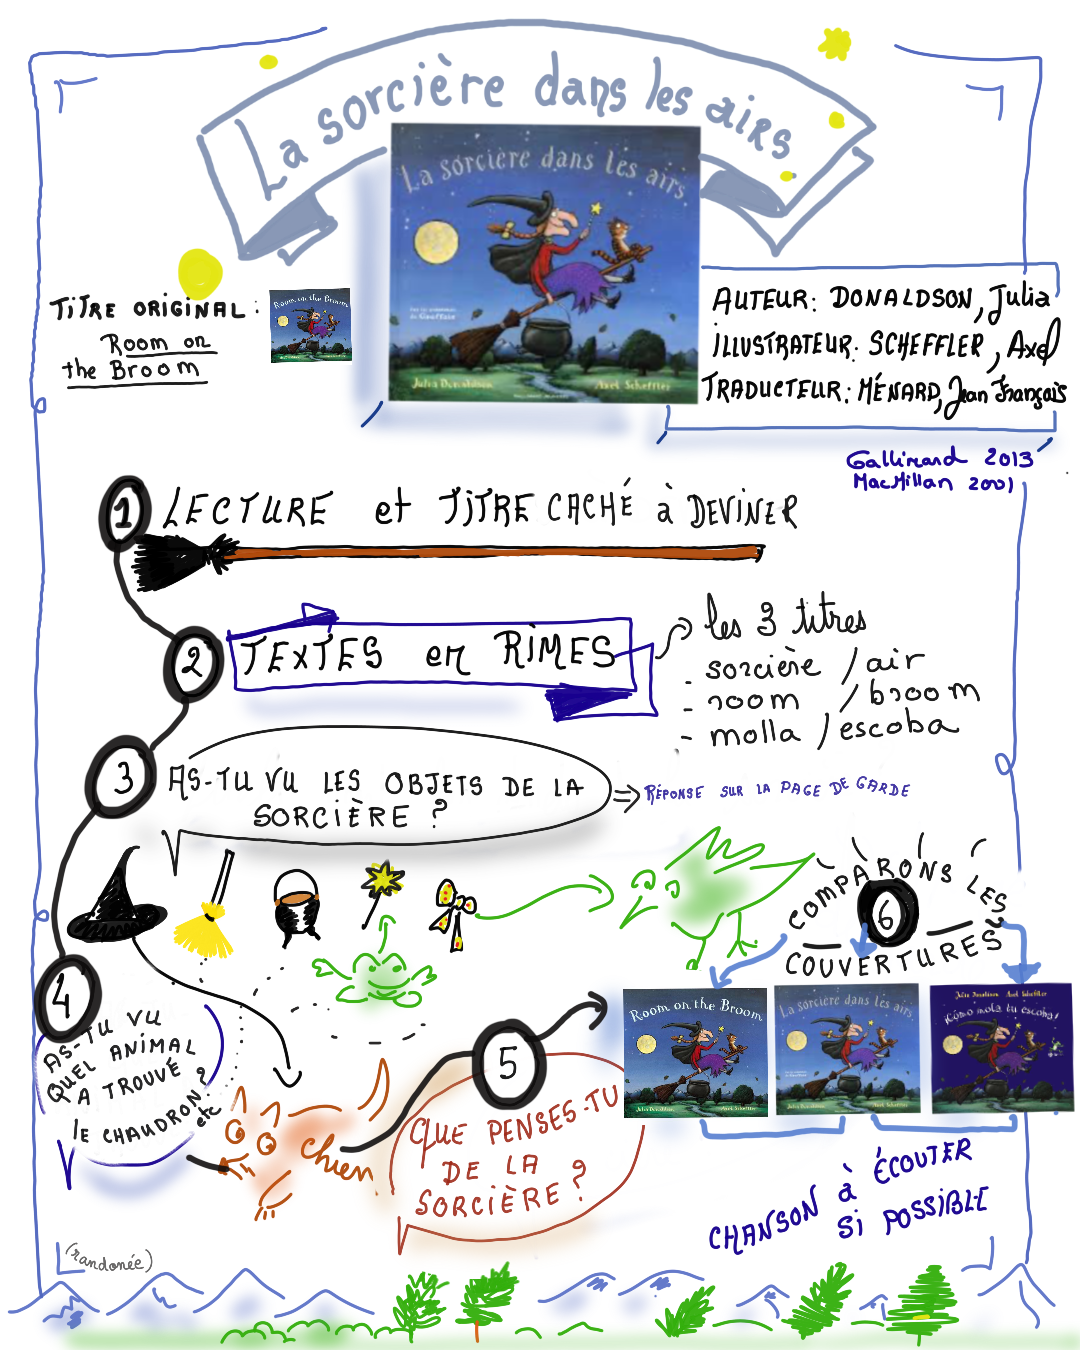 La sorcière dans les airs
La sorcière dans les airs
Julia Donaldson
Axel Scheffler
TITRE ORIGINAL :
Room on
the Broom
Room on the Broom
AUTEUR: DONALDSON, Julia
ILLUSTRATEUR: SCHEFFLER, Axel
TRADUCTEUR: MÉNARD, Jean François
Gallimard 2013
MacMillan 2001
1 LECTURE et TITRE CACHÉ à DEVINER
2 TEXTES en RIMES
les 3 titres
- sorcière / air
- room / broom
- molla / escoba
3 AS-TU VU LES OBJETS DE LA
SORCIÈRE ?
RÉPONSE SUR LA PAGE DE GARDE
4
AS-TU VU
QUEL ANIMAL
A TROUVÉ
le CHAUDRON ?
etc
chien
5
QUE PENSES-TU
DE LA
SORCIÈRE ?
6
COMPARONS LES
COUVERTURES
Room on the Broom
Julia Donaldson
Axel Scheffler
La sorcière dans les airs
Julia Donaldson
Axel Scheffler
Julia Donaldson Axel Scheffler
¡Cómo mola tu escoba!
CHANSON à ÉCOUTER
Si POSSIBLE
(randonée)